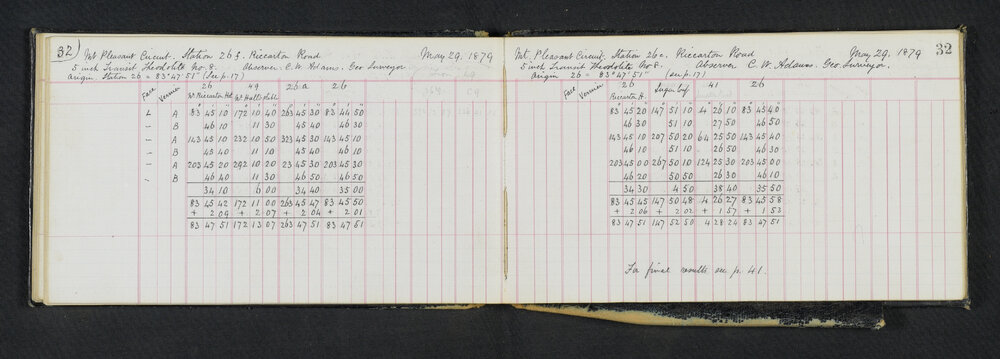 32)
Mt Pleasant Circuit. Station 26 f. Riccarton Road May 29. 1879
5 inch Transit Theodolite No. 8. Observer. C. W. Adams. Geo. Surveyor
Origin Station 26 = 83° 47' 51" (See p. 17)
Face Vernier 26 49 26 a 26
W. Riccarton Hot. W. Halls Stable
L A 83 45 10 172 10 40 263 45 30 83 44 50
- B 46 10 11 30 45 40 46 30
- A 143 45 10 232 10 50 323 45 30 143 45 10
- B 45 40 11 10 45 40 46 10
- A 203 45 20 292 10 20 23 45 30 203 45 30
- B 46 40 11 30 46 50 46 50
34 10 6 00 34 40 35 00
83 45 42 172 11 00 263 45 47 83 45 50
+ 2 09 + 2 07 + 2 04 + 2 01
83 47 51 172 13 07 263 47 51 83 47 51
32
Mt. Pleasant Circuit. Station 26 c. Riccarton Road May 29. 1879
5 inch Transit Theodolite No. 8. Observer C. W. Adams. Geo. Surveyor.
Origin 26 = 83° 47' 51" (see p. 17)
Face Vernier 26 Sugar Loaf 41 26
Riccarton H.
83 45 20 147 51 10 4 26 10 83 45 40
46 30 51 10 27 50 46 50
143 45 10 207 50 20 64 25 50 143 45 40
46 10 51 10 26 50 46 30
203 45 00 267 50 10 124 25 30 203 45 00
46 20 50 50 26 30 46 10
34 30 4 50 38 40 35 50
83 45 45 147 50 48 4 26 27 83 45 58
+ 2 06 + 2 02 + 1 57 + 1 53
83 47 51 147 52 50 4 28 24 83 47 51
For final results see p. 41.